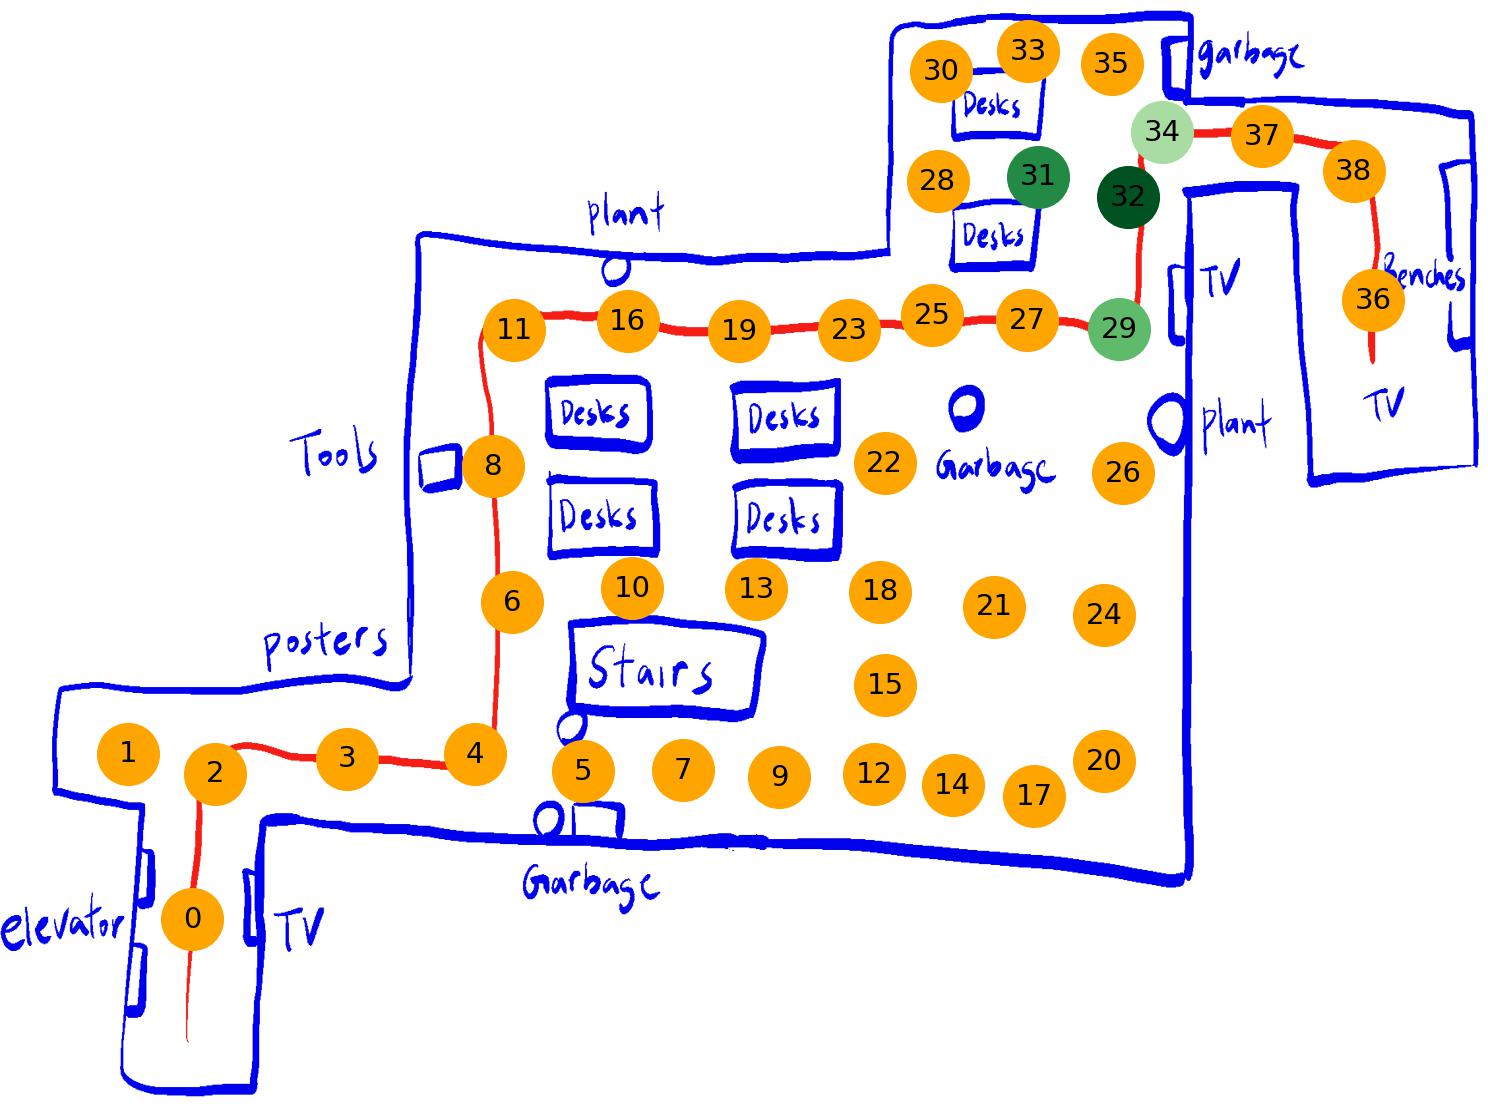 33
35
30
garbage
Desks
34
37
38
31
28
32
plant
Desks
TV
Benches
36
25
16
27
11
19
23
29
TV
Desks
Desks
plant
Tools
8
22
Garbage
26
Desks
Desks
10
13
18
6
21
24
posters
Stairs
15
1
2
3
4
5
7
9
12
14
17
20
Garbage
elevator
0
TV